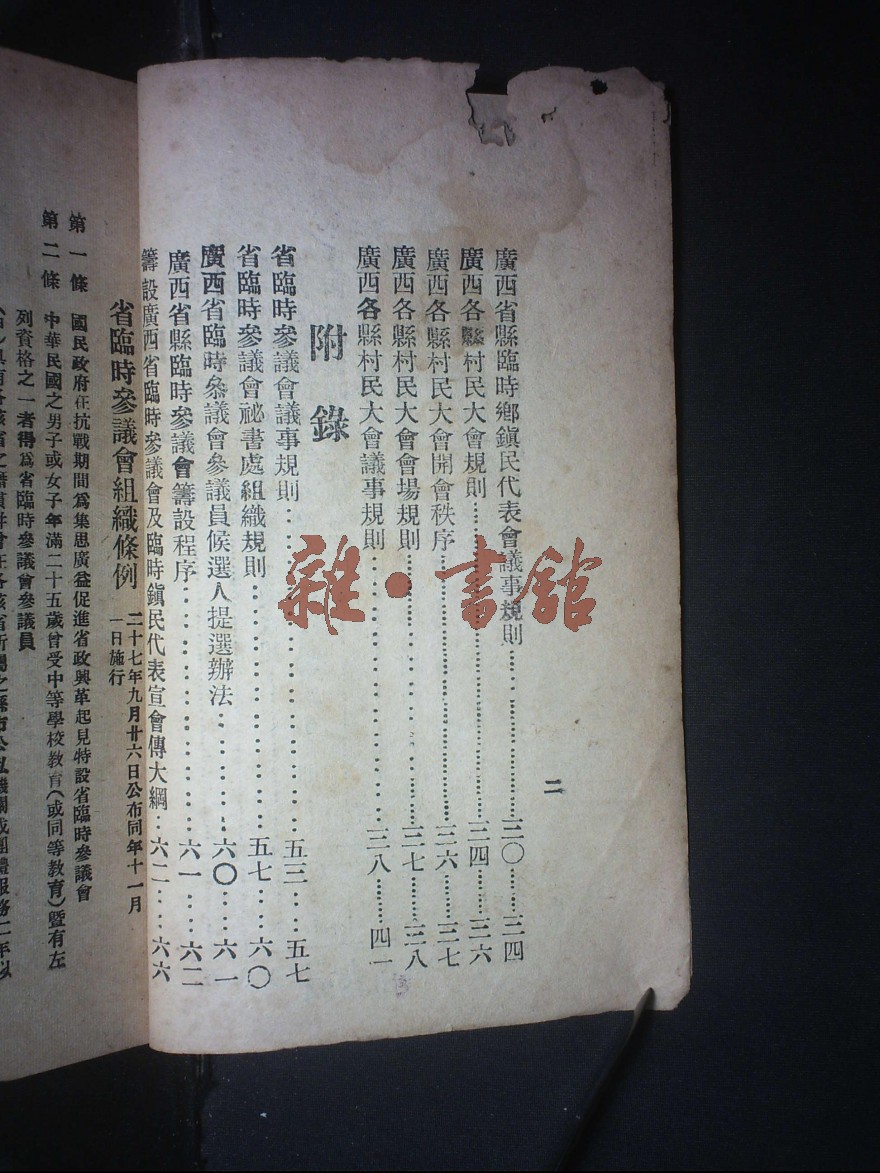 二
廣西省縣臨時鄉鎭民代表會議事規則……三〇……三四
廣西各縣村民大會規則……三四……三六
廣西各縣村民大會開會秩序……三六……三七
廣西各縣村民大會會場規則……三七……三八
廣西各縣村民大會議事規則……三八……四一
附錄
省臨時參議會議事規則……五三……五七
省臨時參議會祕書處組織規則……五七……六〇
廣西省臨時參議會參議員候選人提選辦法……六〇……六一
廣西省縣臨時參議會籌設程序……六一……六二
籌設廣西省臨時參議會及臨時鎭民代表宣會傳大綱……六二……六六
省臨時參議會組織條例
二十七年九月廿六日公布同年十一月
一日施行
第一條 國民政府在抗戰期間爲集思廣益促進省政興革起見特設省臨時參議會
第二條 中華民國之男子或女子年滿二十五歲曾受中等學校教育(或同等教育)曁有左
列資格之一者得爲省臨時參議會參議員
雜·書館